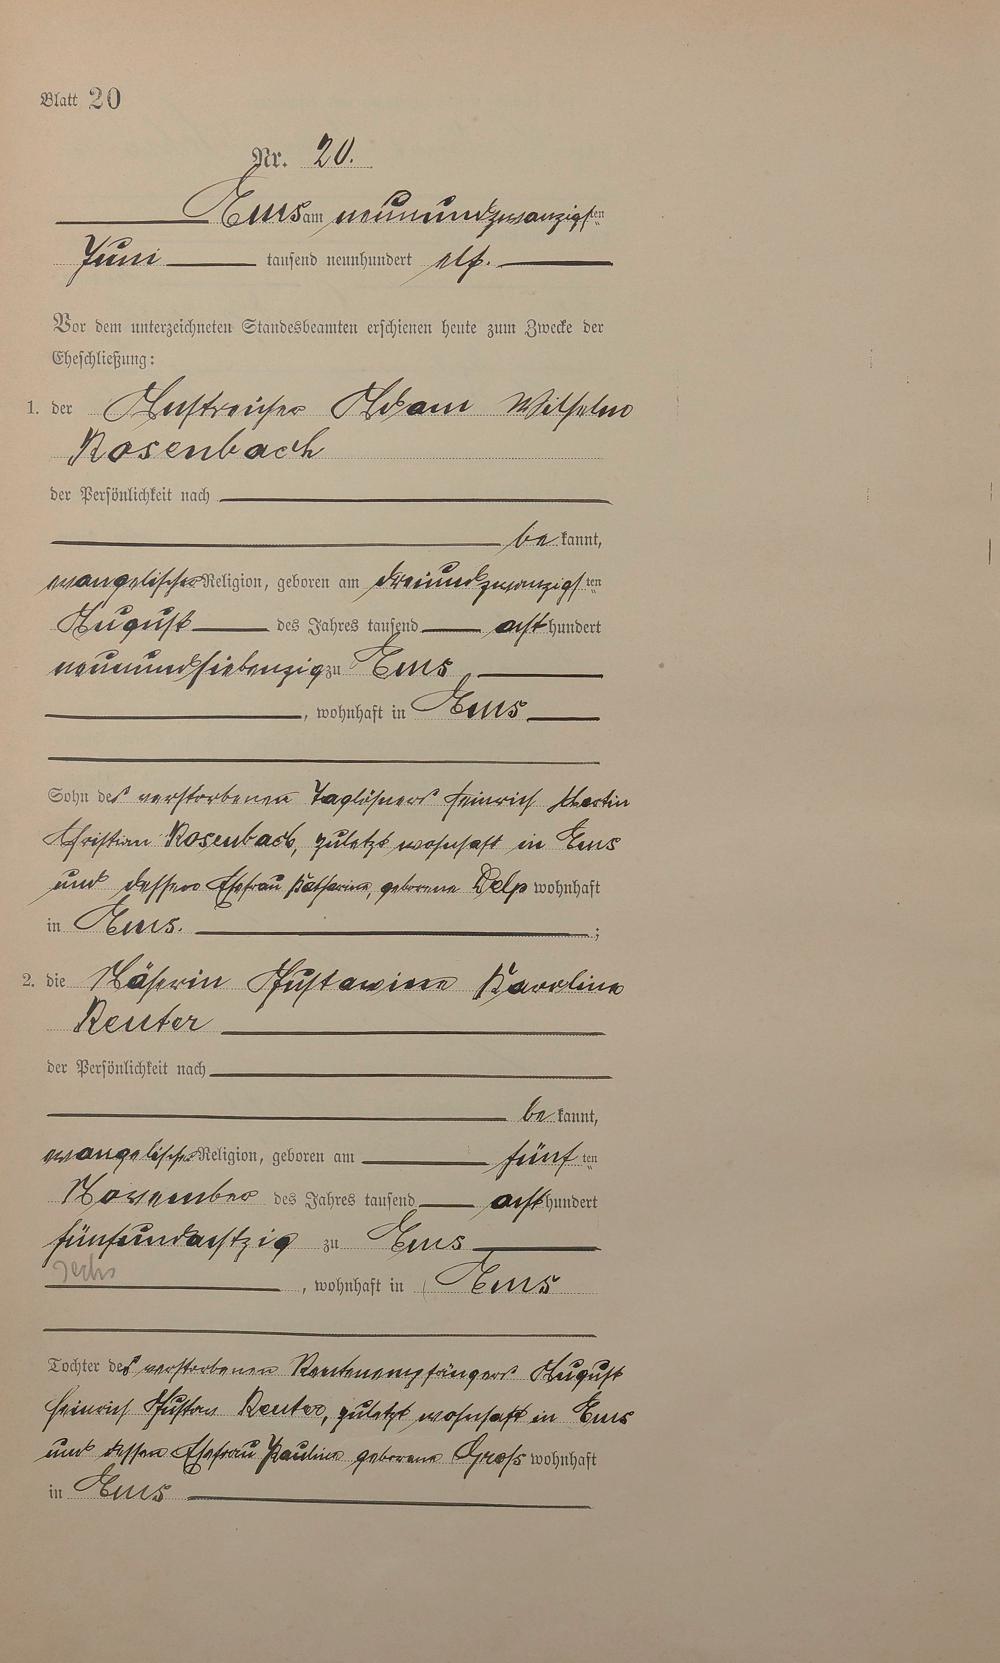 Blatt 20
Nr. 20.
Ems am neunundzwanzigsten
Juni tausend neunhundert elf.
Vor dem unterzeichneten Standesbeamten erschienen heute zum Zwecke der
Eheschließung:
1. der Anstreicher Adam Wilhelm
Rosenbach
der Persönlichkeit nach
bekannt,
evangelischer Religion, geboren am dreiundzwanzigsten
August des Jahres tausend achthundert
neunundsiebenzig zu Ems
, wohnhaft in Ems
Sohn des verstorbenen Taglöhners Heinrich Martin
Christian Rosenbach, zuletzt wohnhaft in Ems
und dessen Ehefrau Katharine, geborene Delp wohnhaft
in Ems. ;
2. die Näherin Gustawine Karoline
Reuter
der Persönlichkeit nach
bekannt,
evangelischer Religion, geboren am fünften
November des Jahres tausend achthundert
fünfundachtzig zu Ems
sechs
, wohnhaft in Ems
Tochter des verstorbenen Rentenempfängers August
Heinrich Gustav Reuter, zuletzt wohnhaft in Ems
und dessen Ehefrau Pauline geborene Groß wohnhaft
in Ems